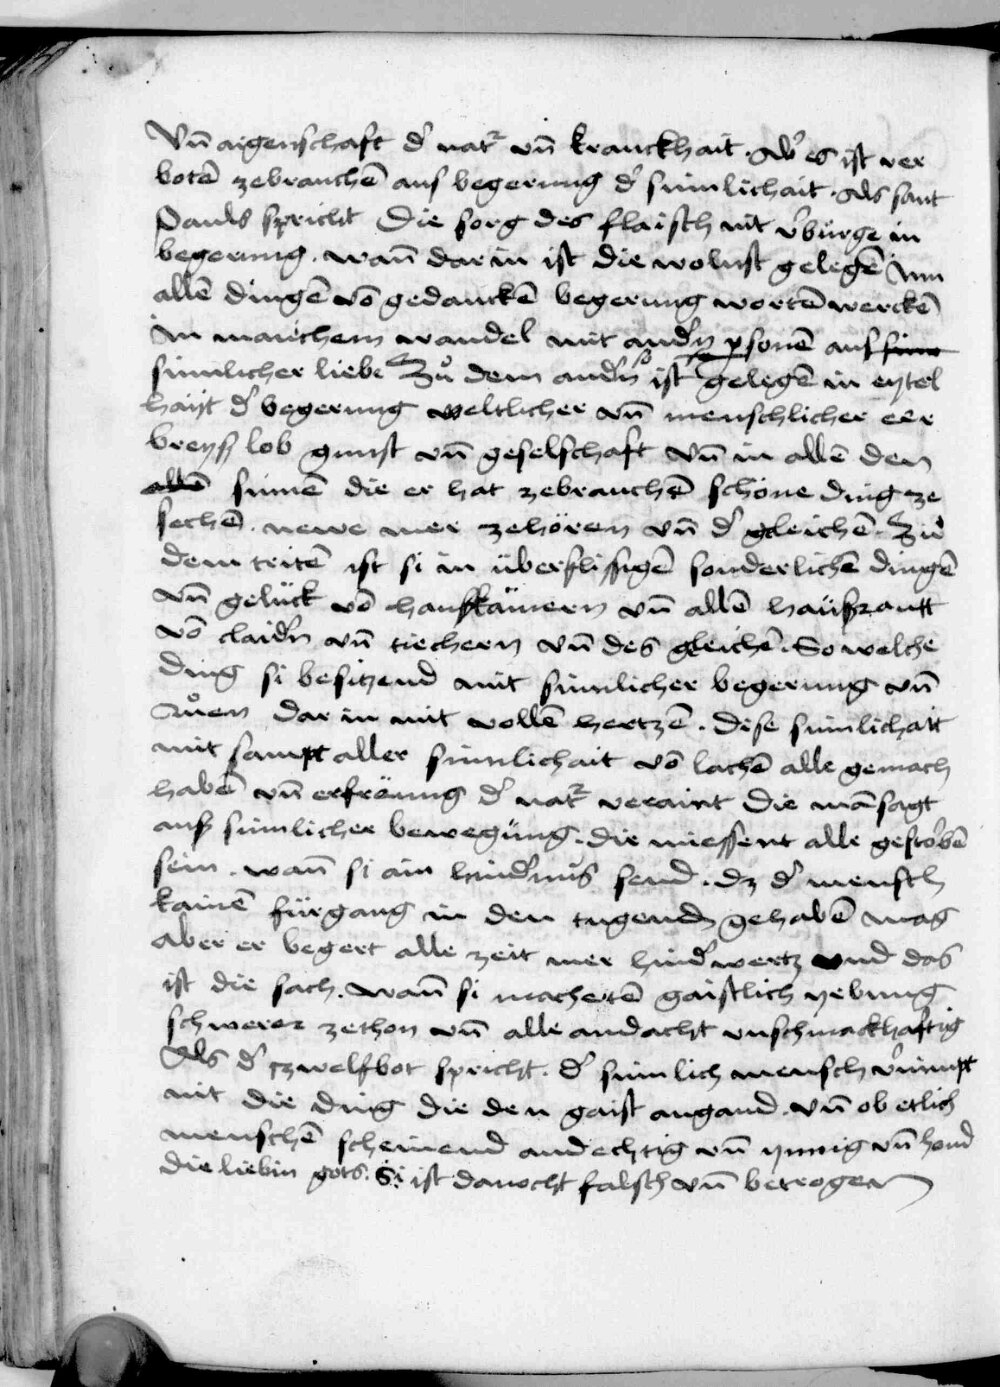 Vn̄ aigenschaft d' nat͛ vn̄ kranckhait. Ab' es ist ver
botē zebrauchē aus begerung d' sinnlichait. Als sant
Pauls spricht Die sorg des flaisch nit v'bürge in
begerung. wan̄ dar in ist die wolust gelegē Inn
allē dingē vō gedanckē begerung wortē werckē
in manchem wandel mit and'n psonē aus
sinnlicher liebe Zů dem and'n so ist gelegē in eytel
hayt d' begerung weltlicher vn̄ menschlicher eer
breyß lob gunst vn̄ geselschaft vn̄ in allē den
allē sinnē die er hat zebrauchē schöne ding ze
sechē. newe mer zehören vn̄ d' gleichē. Zů
dem tritē ist si in überflissigē sonderlichē dingē
vn̄ gelück vō haußkamern vn̄ allē haüßratt
vō claid'n vn̄ tiechern vn̄ des gleichē. So welche
ding si besitzend mit sinnlicher begerung vn̄
růen dar in mit vollē hertzē. dise sinnlichait
mit sampt aller sinnlichait vō lachē alle gemach
habē vn̄ erfröung d' nat͛ veraint Die mā sagt
auß sinnlicher bewegüng. die miessent alle gestorbē
sein. wan̄ si ain hind'nus send. dz d' mensch
kainē fürgang in den tugendn gehabē mag
aber er begert alle zeit mer hind'wertz vnd das
ist die sach. wan̄ si machetē gaistlich yebung
schwerer zethon vn̄ alle andacht vnschmackhaftig
Als d' tzwelfbot spricht. d' sinnlich mensch v'nimpt
nit die ding die den gaist angand. vn̄ ob etlich
menschē scheinend andechtig vn̄ ynnig vn̄ hond
die liebin gots. Si ist danocht falsch vn̄ betrogen